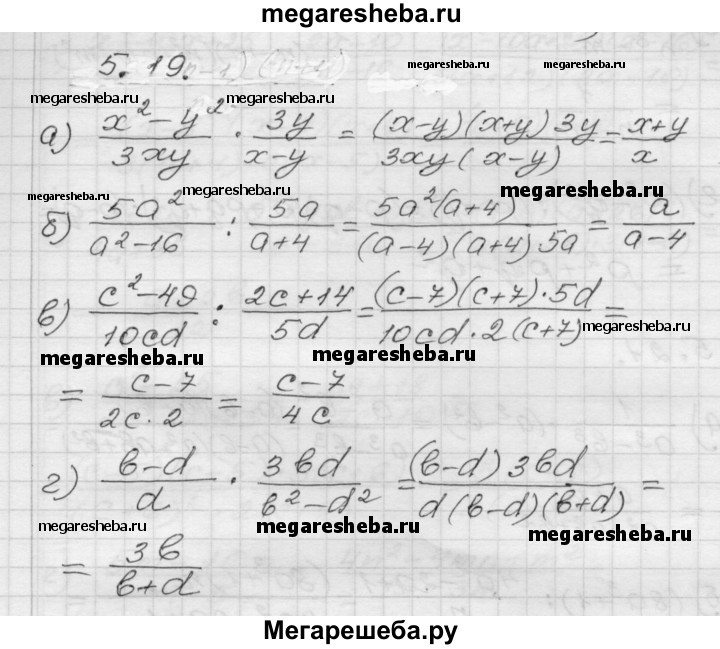 megaresheba.ru
5.19.
megaresheba.ru
megaresheba.ru megaresheba.ru
а) (x² − y²)/(3xy) · (3y)/(x−y) = ((x−y)(x+y) 3y)/(3xy(x−y)) = (x+y)/x
megaresheba.ru megaresheba.ru megaresheba.ru
б) (5a²)/(a²−16) : (5a)/(a+4) = (5a²(a+4))/((a−4)(a+4) 5a) = a/(a−4)
в) (c²−49)/(10cd) : (2c+14)/(5d) = ((c−7)(c+7)·5d)/(10cd·2(c+7)) =
megaresheba.ru
megaresheba.ru megaresheba.ru
= (c−7)/(2c·2) = (c−7)/(4c)
megaresheba.ru megaresheba.ru
г) (b−d)/d · (3bd)/(b²−d²) = ((b−d) 3bd)/(d(b−d)(b+d)) =
megaresheba.ru megaresheba.ru megaresheba.ru
= (3b)/(b+d)
megaresheba.ru megaresheba.ru
Мегарешеба.ру